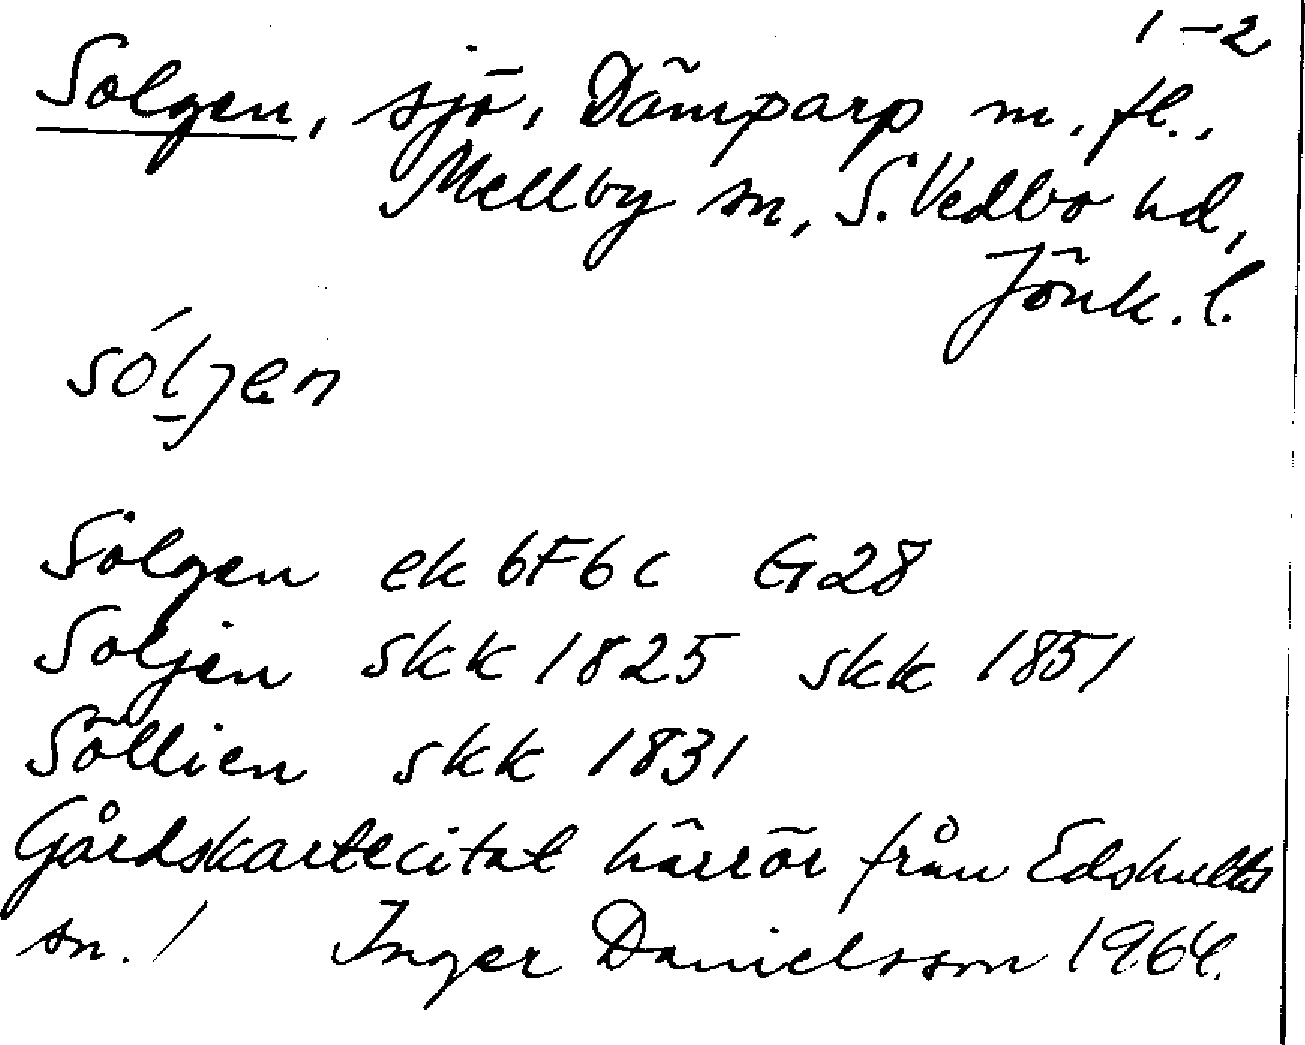 1-2
Solgen, sjö, Dämparp m. fl.,
Mellby sn, S. Vedbo hd,
Jönk. l.
sóljen
Solgen ek 6F6c G28
Soljen skk 1825 skk 1851
Söllien skk 1831
Gårdskartecitat härrör från Edshults
sn. / Inger Danielsson 1964.